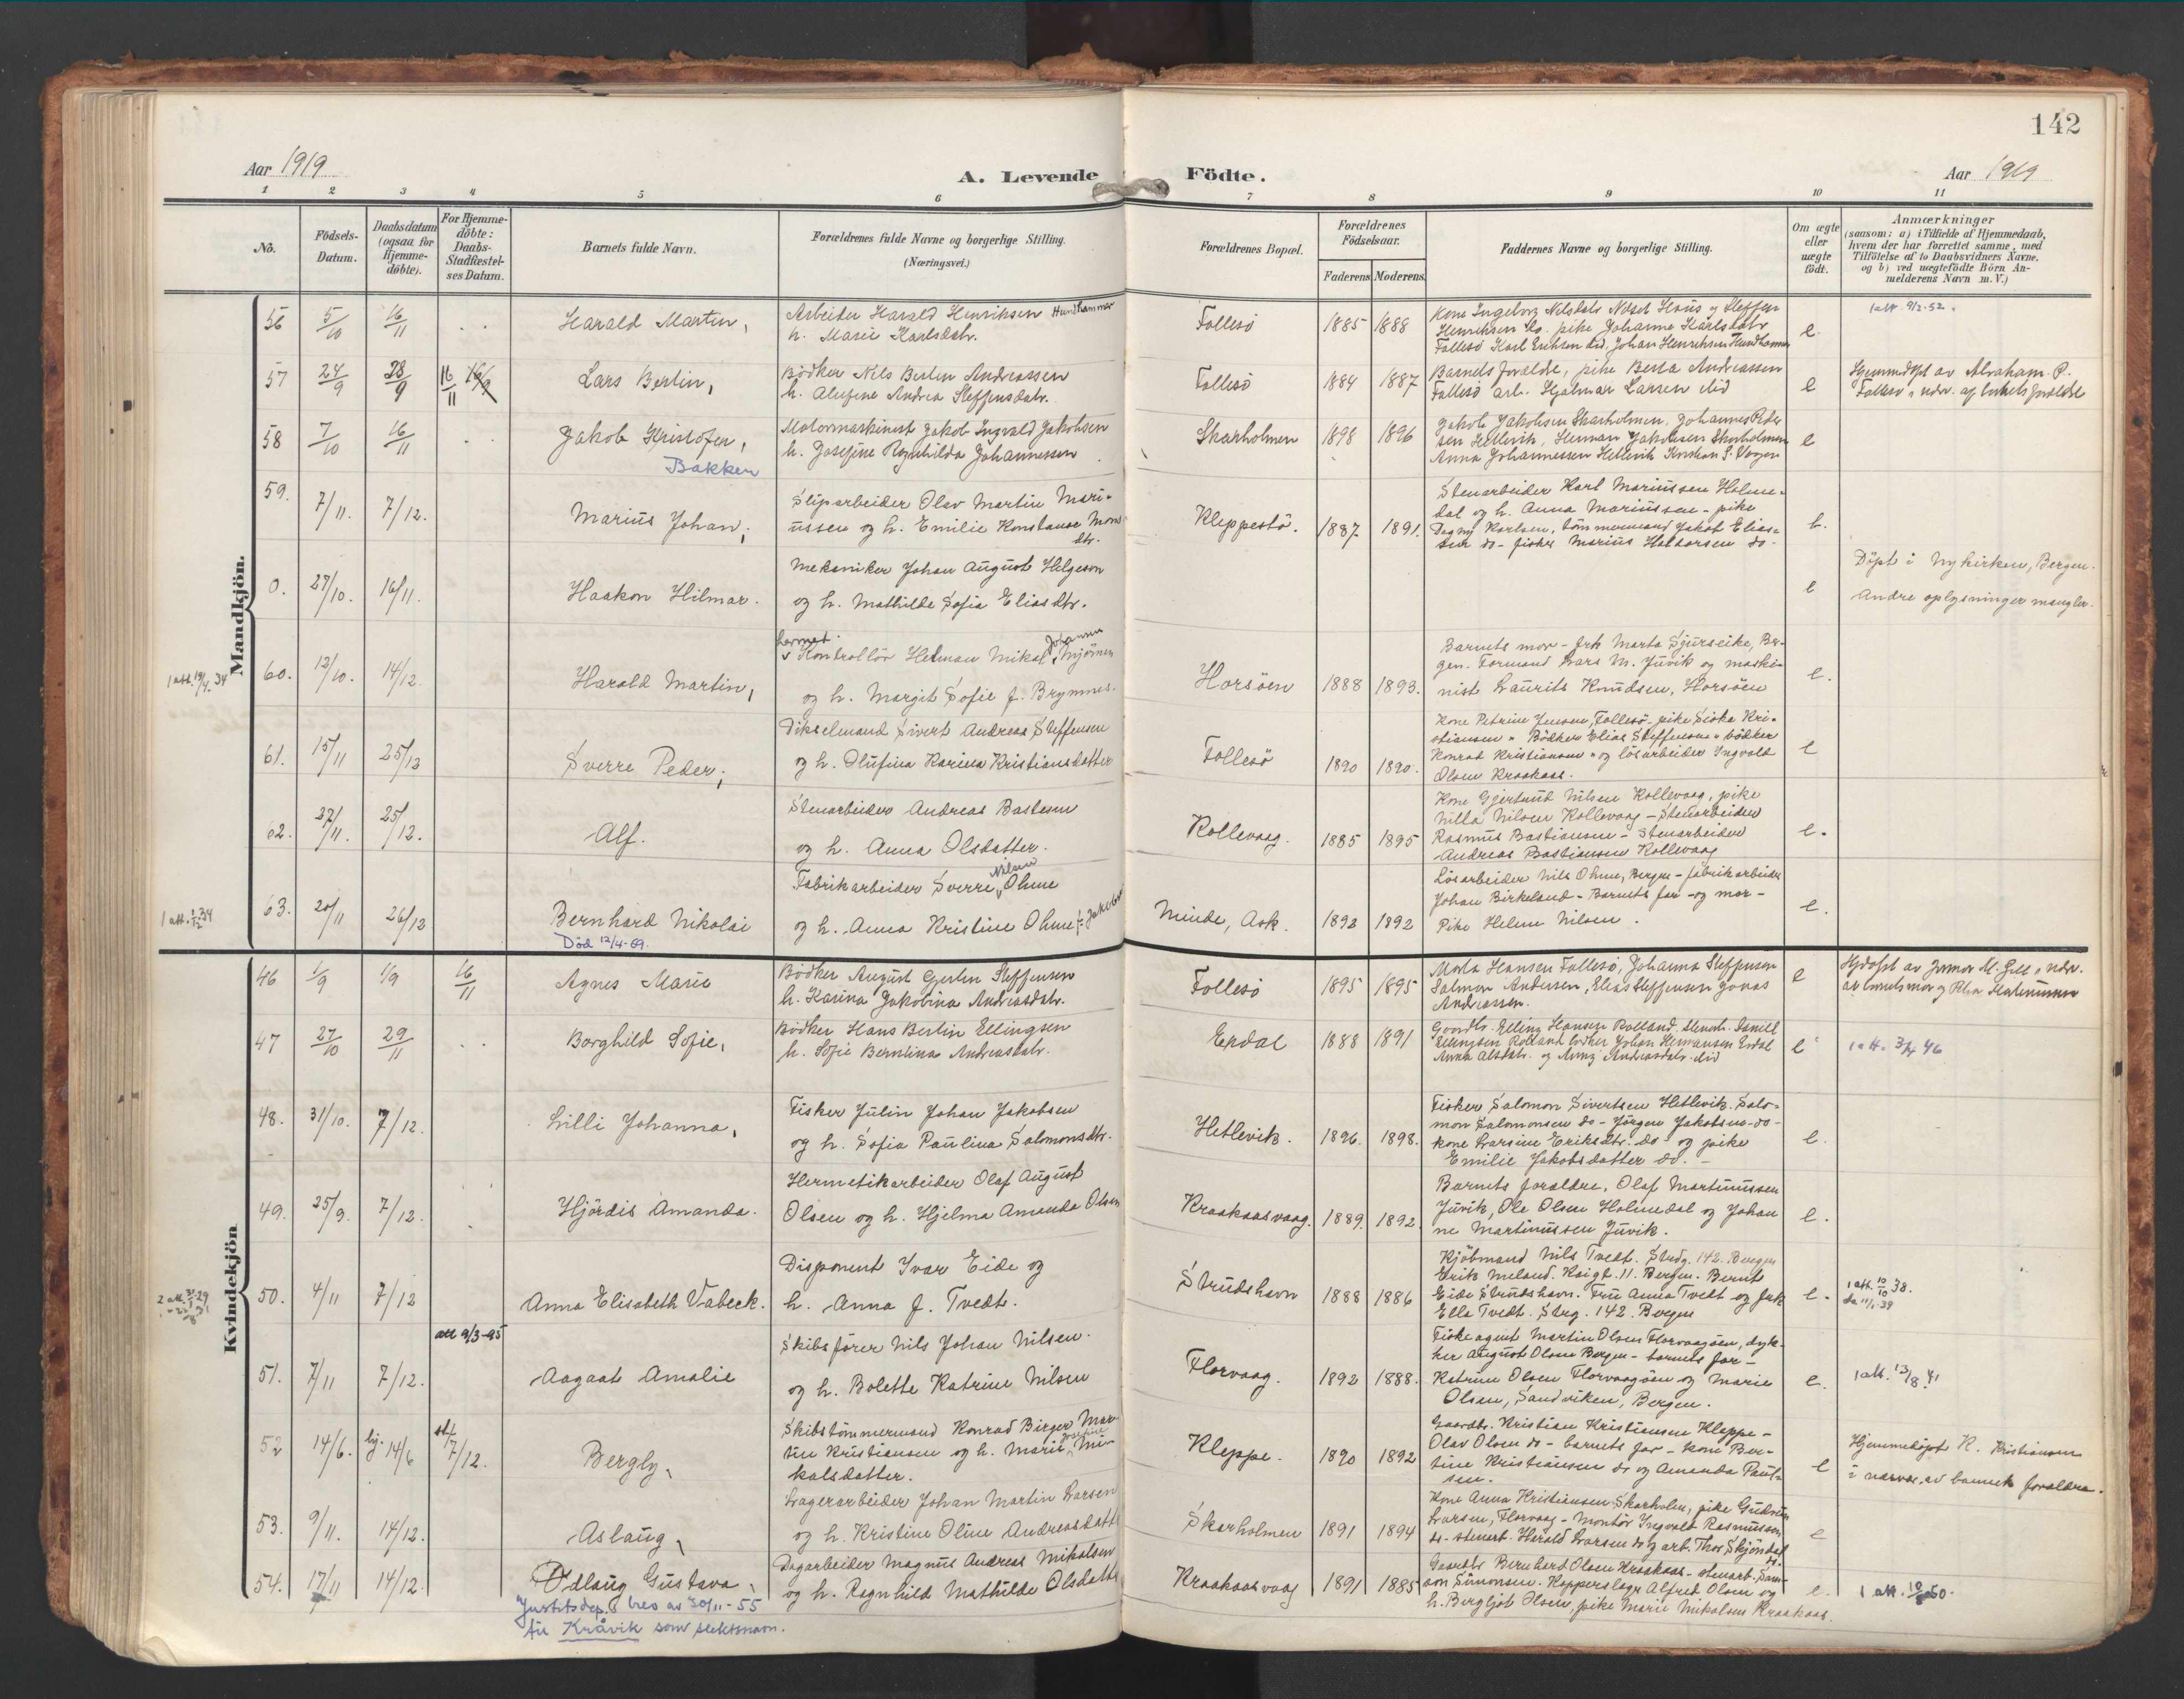 142
Aar 1919
A. Levende Födte.
Aar 1919
1 2 3 4 5 6 7 8 9 10 11
No.
Födsels-Datum.
Daabsdatum (ogsaa for Hjemme-döbte).
For Hjemme-döbte: Daabs-Stadfæstel-ses Datum.
Barnets fulde Navn.
Forældrenes fulde Navne og borgerlige Stilling. (Næringsvei.)
Forældrenes Bopæl.
Forældrenes Födselsaar.
Faderens Moderens
Faddernes Navne og borgerlige Stilling.
Om ægte eller uægte födt.
Anmærkninger
(saasom: a) i Tilfælde af Hjemmedaab,
hvem der har forrettet samme, med
Tilföielse af to Daabsvidners Navne.
og b) ved uægtefödte Börn An-
melderens Navn m. V.)
Mandkjön.
56 5/10 16/11 Harald Martin,
Arbeider Harald Henriksen Hundhammer
h. Marie Karlsdatr.
Follesö 1885 1888
Kone Ingeborg Nilsdatr. Steffen
Henriksen do. pike Johanne Karlsdatr
Follesö Karl Erichsen ibid, Johan Henriksen Hundhammer
e
1 att. 9/2. 52.
57 24/9 28/9 16/11 Lars Bertin,
Bödker Nils Bertin Andreassen
h. Alufine Andrea Steffensdatr.
Follesö 1884 1887
Barnets forældre, pike Berta Andreassen
Follesö arb. Hjalmar Larsen ibid
e
Hjemmedöpt av Abraham P.
Follesö i nærv. af barnets forældre
58 7/10 16/11 Jakob Kristofer,
Bakken
Motormaskinist Jakob Ingvald Jakobsen
h. Josefine Ragnhilda Johannessen
Skarholmen 1898 1896
Jakob Jakobsen Skarholmen, Johannes Peder
sen Hetlevik, Herman Jakobsen Skarholmen
Anna Johannessen Hetlevik
e
59. 7/11. 7/12. Marius Johan,
Sliparbeider Olav Martin Mari-
ussen og h. Emilie Konstanse Mons
dtr.
Kleppestö. 1887 1891.
Stenarbeider Karl Mariussen Holme-
dal og h. Anna Mariussen - pike
Dagny Karlsen, tömmermand Jakob Elias-
sen do - fisker Marius Halvorsen do.
e.
0. 27/10. 16/11. Haakon Hilmar.
Mekaniker Johan August Helgeson
og h. Mathilde Sofia Eliasdtr.
e
Döpt i Nykirken, Bergen.
Andre oplysninger mangler.
1 att. 19/4. 34
60. 12/10. 14/12. Harald Martin,
Kontrollör Helman Mikal Johansen Mjörnen
og h. Margit Sofie f. Brynnes.
Horsöen 1888 1893.
Barnets mor - frk Marta Sjurseike, Ber-
gen. Formand Lars M. Juvik og maski-
nist Laurits Knudsen, Horsöen
e.
61. 15/11 25/12 Sverre Peder,
Dikselmand Sivert Andreas Steffensen
og h. Olufina Karina Kristiansdatter
Follesö 1890 1890.
Kone Petrine Jensen, Follesö - pike Siska Kri-
stiansen " Bödker Elias Steffensen " bödker
Konrad Kristiansen " og lösarbeider Ingvald
Olsen Kraakaas.
e
62. 27/11. 25/12. Alf.
Stenarbeider Andreas Bastesen
og h. Anna Olsdatter.
Rollevaag. 1885 1895
Kone Gjertrud Nilsen Rollevaag, pike
Nilla Nilsen Rollevaag - Stenarbeider
Rasmus Bastiansen - Stenarbeider
Andreas Bastiansen Rollevaag
e.
1 att. 1/12 34
63. 20/11 26/12 Bernhard Nikolai
Död 12/4-69.
Fabrikarbeider Sverre Nilsen Ohme
og h. Anna Kristine Ohme f. Jakobs
Minde, Ask. 1892 1892
Lösarbeider Nils Ohme, Bergen - fabrikarbeider
Johan Birkeland - Barnets far - og mor -
Pike Helene Nilsen.
e.
Kvindekjön
46 1/9 1/9 16/11 Agnes Marie
Bödker August Gerten Steffensen
h. Karina Jakobina Andreasdatr.
Follesö 1895 1895
Marta Hansen Follesö, Johanna Steffensen
Salmon Andersen, Elias Steffensen Jonas
Andreassen.
e
47 27/10 29/11 Borghild Sofie,
Bödker Hans Bertin Ellingsen
h. Sofie Berntina Andreasdatr.
Erdal 1888 1891
Gaardbr. Elling Hansen Rolland. Stenarb. Daniel
Ellingsen Rolland bödker Johan Hermansen Erdal
Anna Olsdatr. og Anna Andreasdatr. ibid
e
1 att. 3/4 46
48. 31/10. 7/12. Lilli Johanna,
Fisker Julin Johan Jakobsen
og h. Sofia Paulina Salomonsdtr.
Hetlevik. 1896. 1898.
Fisker Salomon Sivertsen Hetlevik. Salo-
mon Salomonsen do - Jörgen Jakobsen - do -
kone Larsine Eriksdtr. do - og pike
Emilie Jakobsdatter do. -
e.
49. 25/9. 7/12. Hjördis Amanda.
Hermetikarbeider Olaf August
Olsen og h. Hjelma Amanda Olsen
Kraakaasvaag. 1889. 1892.
Barnets forældre, Olaf Martinussen
Juvik, Ole Olsen Holmedal og Johan
ne Martinussen Juvik.
e.
50. 4/11 7/12 Anna Elisabeth Vabeck.
Disponent Ivar Eide og
h. Anna f. Tvedt.
Strudshavn 1888 1886
Kjöbmand Nils Tvedt. Strdg. 142. Bergen
Erik Meland. Kaigt. 11. Bergen. Bernt
Eide Strudshavn. Fru Anna Tvedt og frk
Ella Tvedt. Strg. 142. Bergen
e.
1 att. 10/10 38.
do 11/1-39
att 9/3-95
51. 7/11 7/12. Aagaat Amalie
Skibsförer Nils Johan Nilsen.
og h. Bolette Katrine Nilsen
Florvaag. 1892 1888.
Fiskeagent Martin Olsen Florvaagöen, dyk-
ker August Olsen Bergen - barnets far -
Katrine Olsen Florvaagöen og Marie
Olsen, Sandviken, Bergen.
e.
1 att. 13/8. 41
52 14/6. hj. 14/6 st. 7/12. Bergly,
Skibstömmermand Konrad Birger Mar-
tin Kristiansen og h. Marie Josefine Mi-
kalsdatter.
Kleppe. 1890 1892
Gaardbr. Kristian Kristiansen Kleppe -
Olav Olsen do - barnets far - kone Ber-
tine Kristiansen do og Amanda Paul-
sen.
e
Hjemmedöpt K. Kristiansen
i nærvær. av barnets forældre.
53. 9/11. 14/12. Aslaug,
Lagerarbeider Johan Martin Larsen
og h. Kristine Oline Andreasdatt
Skarholmen 1891 1894
Kone Anna Kristiansen Skarholm, pike Gudrun
Larsen, Florvaag - Montör Ingvald Rasmussen
do - stenarb. Harald Larsen do og arb. Thor Skjöndal
do.
e
54. 17/11 14/12. Odlaug Gustava,
Dagarbeider Magnus Andreas Mikalsen
og h. Ragnhild Mathilde Olsdatt
Kraakaasvaag 1891 1885
Gaardbr Bernhard Olsen Kraakaas - stenarb. Sam-
son Simonsen. Kopperslager Alfred Olsen og
h. Bergljot Olsen, pike Marie Mikalsen Kraakaas.
e.
Justitsdep.s brev av 30/11-55
til Kråvik som slektsnavn.